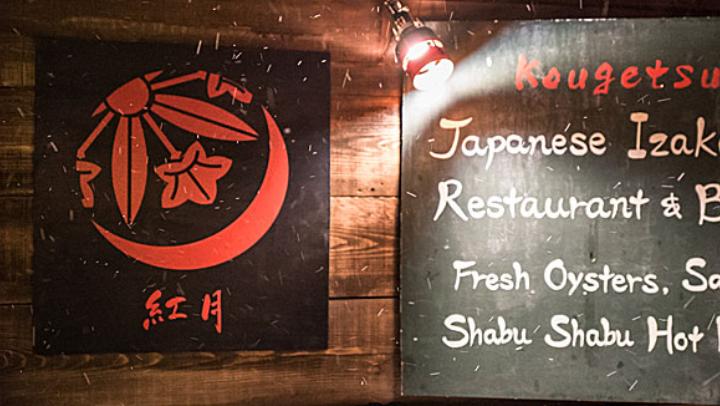 紅月
Kougetsu
Japanese Izak
Restaurant & B
Fresh Oysters, Sa
Shabu Shabu Hot